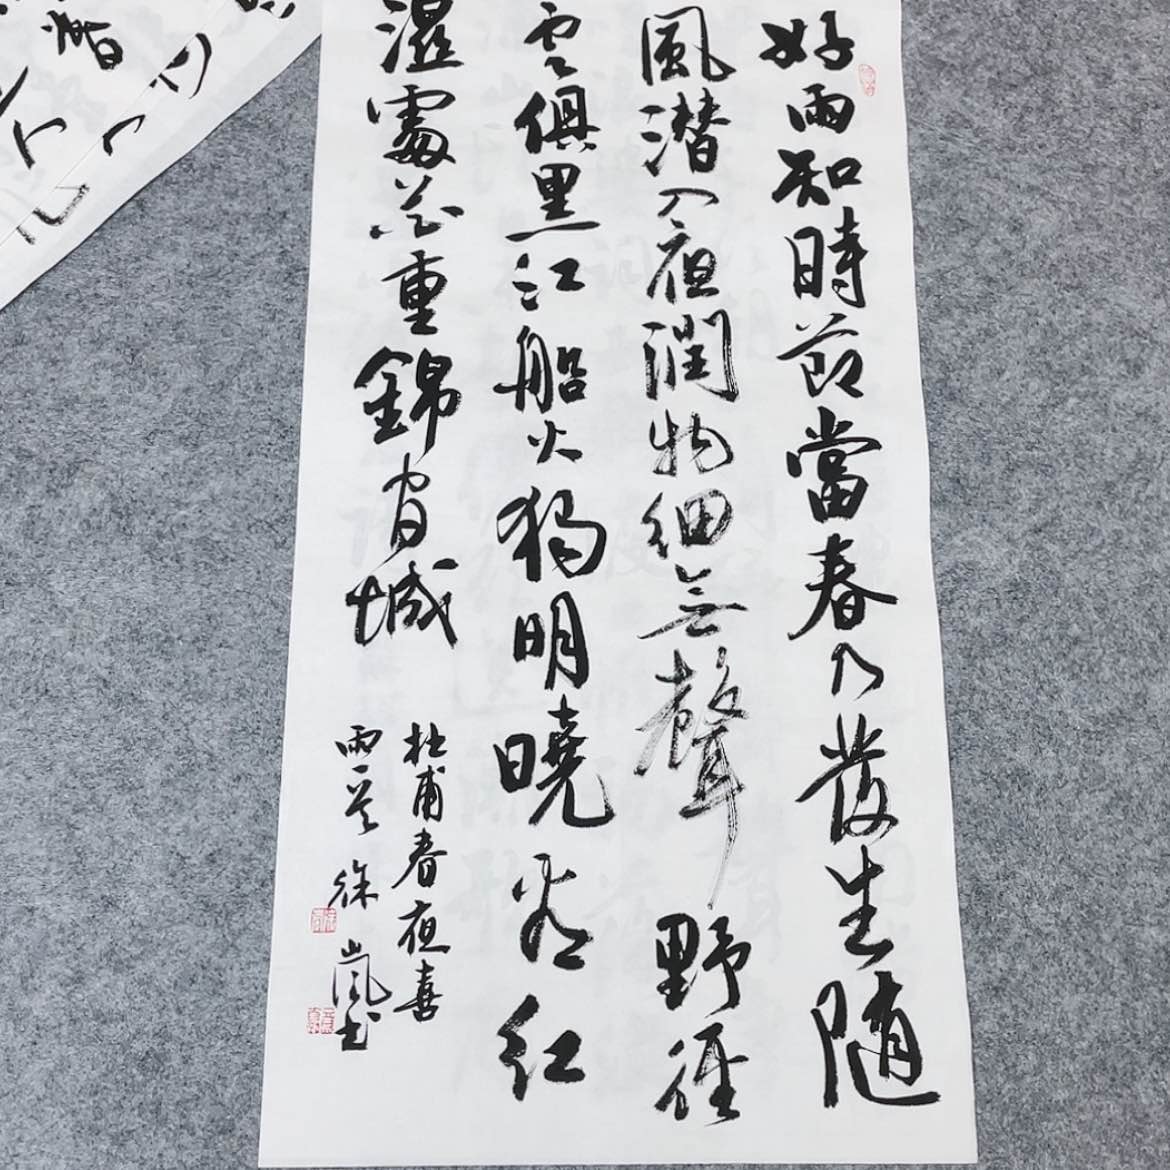 好雨知時節當春乃發生隨
風潜入夜潤物細無聲野徑
雲俱黑江船火獨明曉看紅
濕處花重錦官城
杜甫春夜喜
雨一首徐嵐書